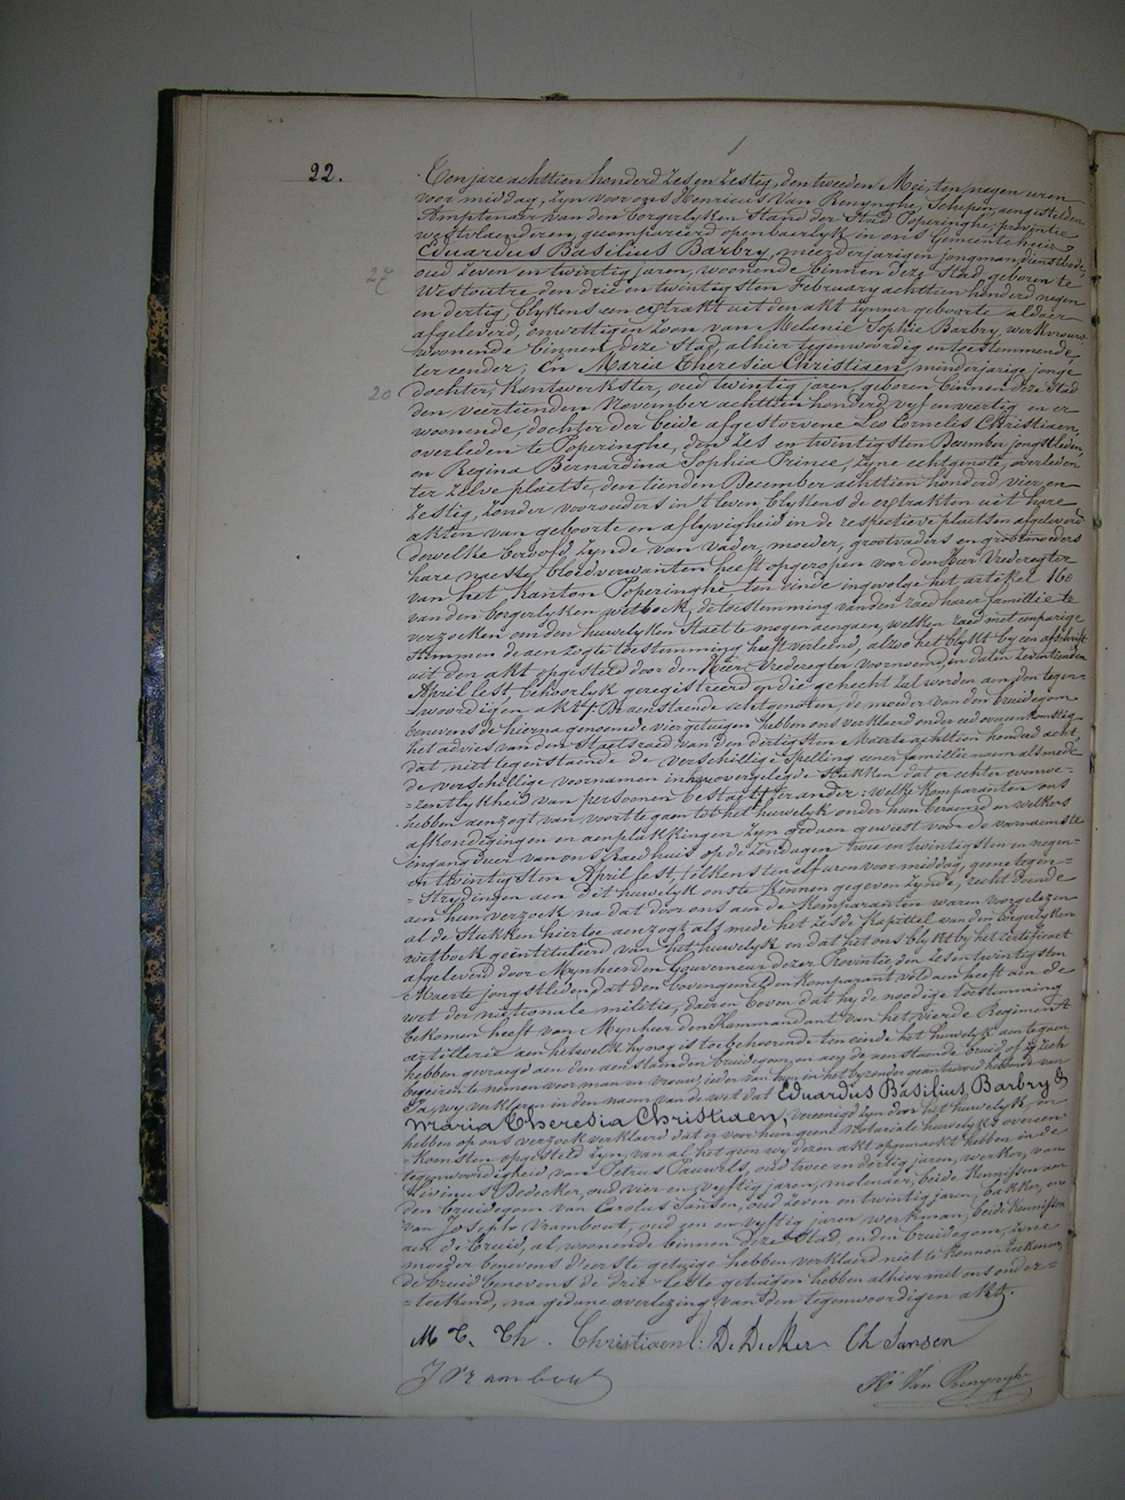 22.
Ten jare achttien honderd zes en zestig, den tweeden Mei, ten negen uren
voor middag, zyn voor ons Henricus Van Renynghe, Schepen, aengestelden
Amptenaer van den borgerlyken stand der Stad Poperinghe, provintie
westvlaenderen, gecompareerd openbaerlyk in ons Gemeentehuis
Eduardus Basilius Barbry, meerderjarigen jongman, dienstbode,
27
oud zeven en twintig jaren, woonende binnen deze stad, geboren te
Westoutre den drie en twintigsten February achttien honderd negen
en dertig, blykens een extrakt uit den akt zyner geboorte aldaer
afgeleverd, onwettigen zoon van Melanie Sophie Barbry, werkvrouw,
woonende binnen deze stad, alhier tegenwoordig en toestemmende,
ter eender; En Maria Theresia Christiaen, minderjarige jonge
20
dochter, kantwerkster, oud twintig jaren, geboren binnen deze stad
den veertienden November achttien honderd vyf en veertig en er
woonende, dochter der beide afgestorvene Leo Cornelis Christiaen,
overleden te Poperinghe, den zes en twintigsten December jongstleden,
en Regina Bernardina Sophia Prince, zyne echtgenote, overleden
ter zelve plaetse, den tienden December achttien honderd vier en
zestig, zonder voorouders in 't leven, blykens de extrakten uit hare
akten van geboorte en aflyvigheid in de respectieve plaetsen afgeleverd
dewelke beroofd zynde van vader, moeder, grootvaders en grootmoeders
hare naeste bloedverwanten heeft opgeropen voor den Heer Vrederegter
van het kanton Poperinghe, ten einde ingevolge het artikel 160
van den borgerlyken wetboek, de toestemming van den raed harer famillie te
verzoeken om den huwelyken staet te mogen aengaen, welken raed met eenparige
stemmen de aenzogte toestemming heeft verleend, alzoo het blykt by een afschrift
uit den akt opgesteld door den Heer Vrederegter voornoemd, in daten zeventienden
April lest, behoorlyk geregistreerd en die gehecht zal worden aen den tegen=
=woordigen akt; De aenstaende echtgenoten, de moeder van den bruidegom
benevens de hierna genoemde vier getuigen hebben ons verklaerd onder eed overeenkomstig
het advies van den Staetsraed van den dertigsten Maerte achttien honderd acht,
dat niet tegenstaende de verschillige spelling eener famillie naem alsmede
de verschillige voornamen in hier overgelegde stukken dat er echter eenwe=
=zentlykheid van persoonen bestaet; ter ander: welke komparanten ons
hebben aenzogt van voort te gaen tot het huwelyk onder hun beraemd en welkers
afkondigingen en aenplakkingen zyn gedaen geweest voor de voornaemste
ingangdeur van ons Raedhuis op de zondagen twee en twintigsten en negen=
en twintigsten April lest, telkens ten elf uren voor middag, geene tegen=
=strydingen aen dit huwelyk ons te kennen gegeven zynde, recht doende
aen hun verzoek na dat door ons aen de komparanten waren voorgelezen
al de stukken hiertoe aenzogt als mede het zesde kapittel van den borgerlyken
wetboek geintituleerd van het huwelyk en dat het ons blykt by het certificaet
afgeleverd door Mynheer den Gouverneur dezer Provintie, den zes en twintigsten
Maerte jongstleden, dat den bovengemelden komparant voldaen heeft aen de
wet der nationale militie, daeren boven dat hy de noodige toestemming
bekomen heeft van Mynheer den Kommandant van het vierde Regiment
artillerie aen hetwelk hy nog is toebehoorende ten einde het huwelyk aen te gaen
hebben gevraegd aen den aenstaenden bruidegom en aen de aenstaende bruid of zy zich
begeiren te nemen voor man en vrouw, ieder van hun in het byzonder geantwoord hebbende van
Ja, wy verklaren in den naem van de wet dat Eduardus Basilius Barbry &
Maria Theresia Christiaen, vereenigd zyn door het huwelyk, en
hebben op ons verzoek verklaerd dat er voor hun geene Notariale huwelyks overeen
=komsten opgesteld zyn, van al het geen wy dezen akt opgemaekt hebben in de
tegenwoordigheid van Petrus Pauwels, oud twee en dertig jaren, werker, van
Livinus Dedecker, oud vier en vyftig jaren, molenaer, beide kennissen aen
den bruidegom van Carolus Jansen, oud zeven en twintig jaren, bakker, en
van Joseph Vrambout, oud zen en vyftig jaren werkman, beide kennissen
aen de bruid, al woonende binnen deze Stad, en den bruidegom, zyne
moeder benevens d'eerste getuige hebben verklaerd niet te konnen teekenen,
de bruid benevens de drie leste getuigen hebben alhier met ons onder=
=teekend, na gedane overlezing van den tegenwoordigen akt.
M T. Th. Christiaen L: De Decker Ch Jansen
J Vrambout
He Van Renynghe